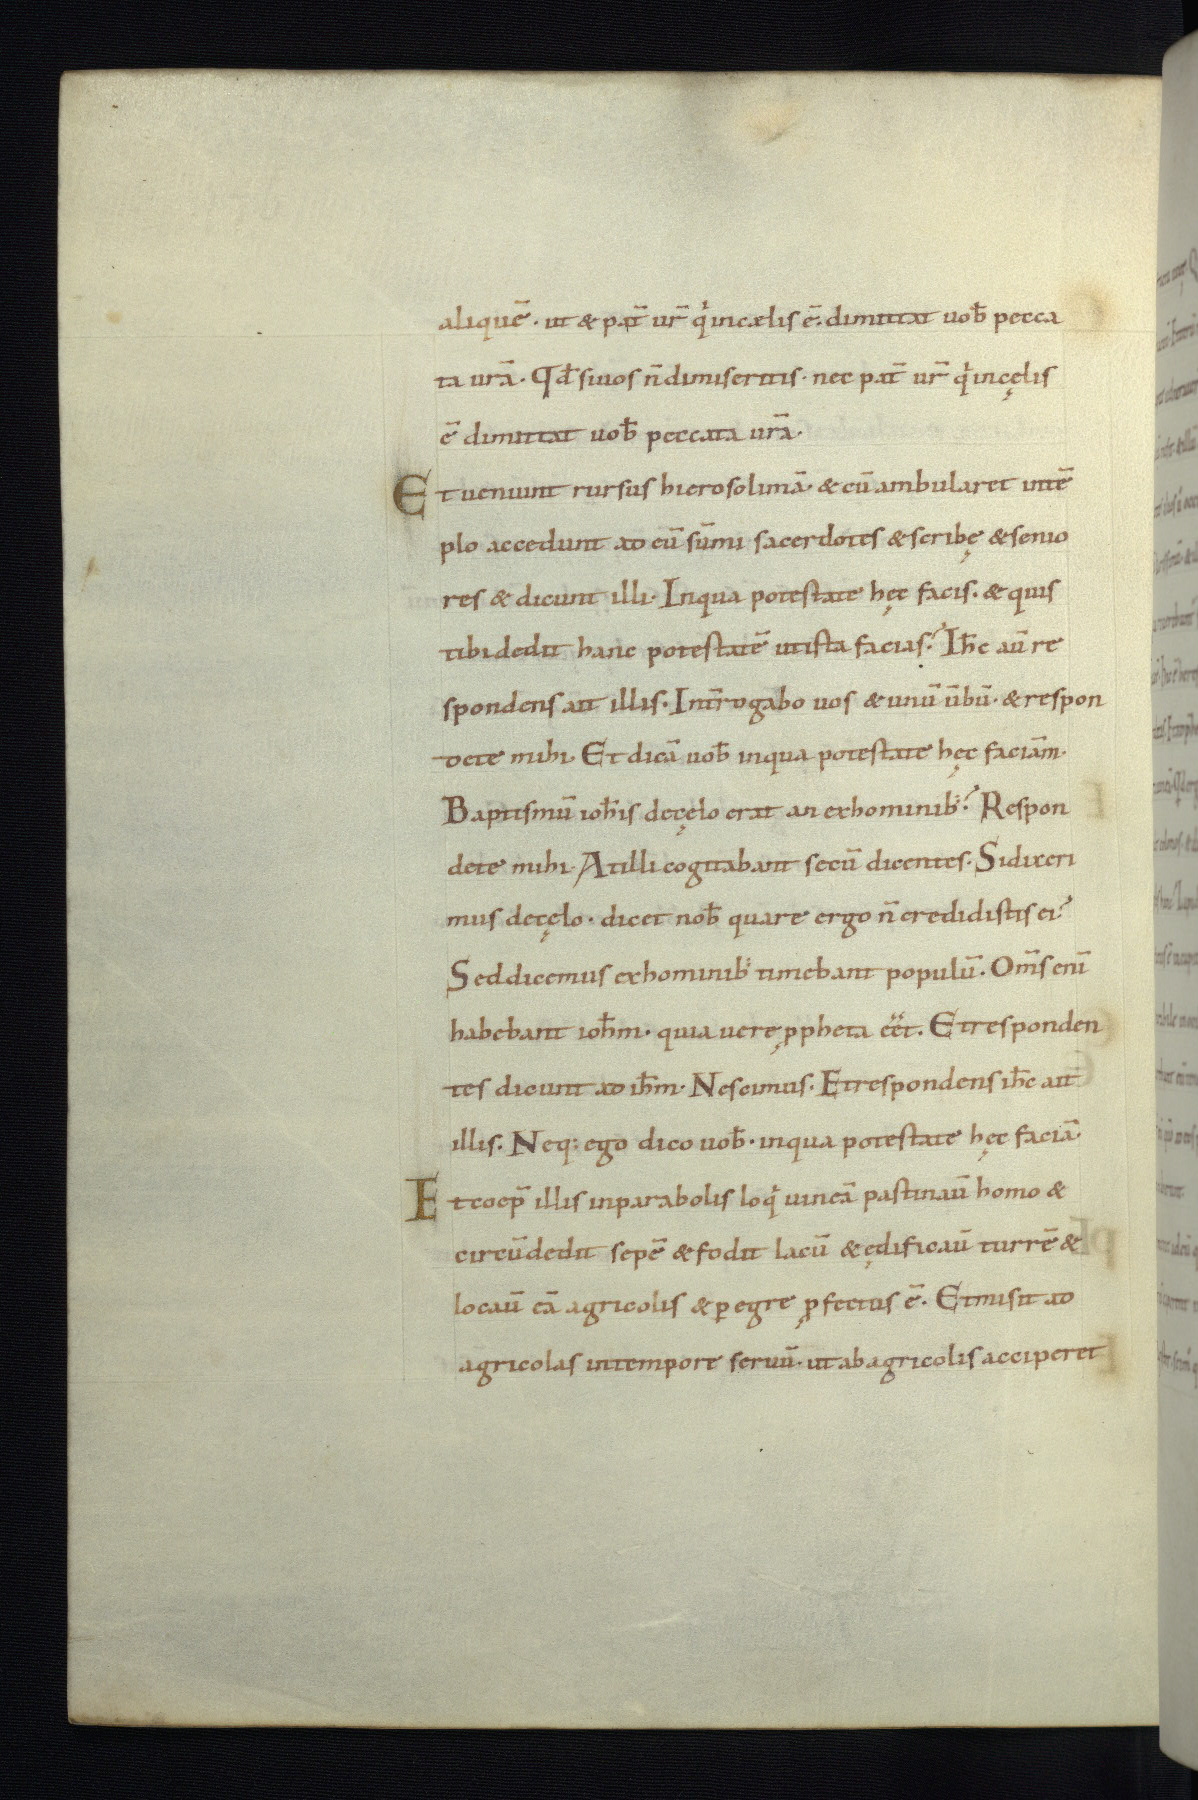 aliquē · ut & pat̄ ur̄ q̇ incælis ē · dimittat uob̄ pecca
ta urā · Qd̄ si uos n̄ dimiseritis · nec pat̄ ur̄ q̇ incęlis
ē dimittat uob̄ peccata urā ·
Et ueniunt rursus hierosolimā · & cū ambularet intē
plo accedunt ad eū sūmi sacerdotes & scribę & senio
res & dicunt illi · Inqua potestate hęc facis · & quis
tibi dedit hanc potestatē ut ista facias? Ih̄c aū re
spondens ait illis · Int̄rogabo uos & unū ūbū · & respon
dete mihi · Et dicā uob̄ inqua potestate hęc faciam̄ ·
Baptismū ioh̄is decęlo erat an exhominib:? Respon
dete mihi · At illi cogitabant secū dicentes · Si dixeri
mus decęlo · dicet nob̄ quare ergo n̄ credidistis ei?
Sed dicemus exhominib: timebant populū · Om̄s enī
habebant ioh̄m · quia uere ꝓpheta eēt · Et responden
tes dicunt ad ih̄m · Nescimus · Et respondens ih̄c ait
illis · Neq: ego dico uob̄ · inqua potestate hęc faciā ·
Et coep̄ illis inparabolis loq̇ uineā pastinaū homo &
circūdedit sepē & fodit lacū & ędificaū turrē &
locaū eā agricolis & ꝑegre ꝓfectus ē · Et misit ad
agricolas intempore seruū · ut abagricolis acciperet